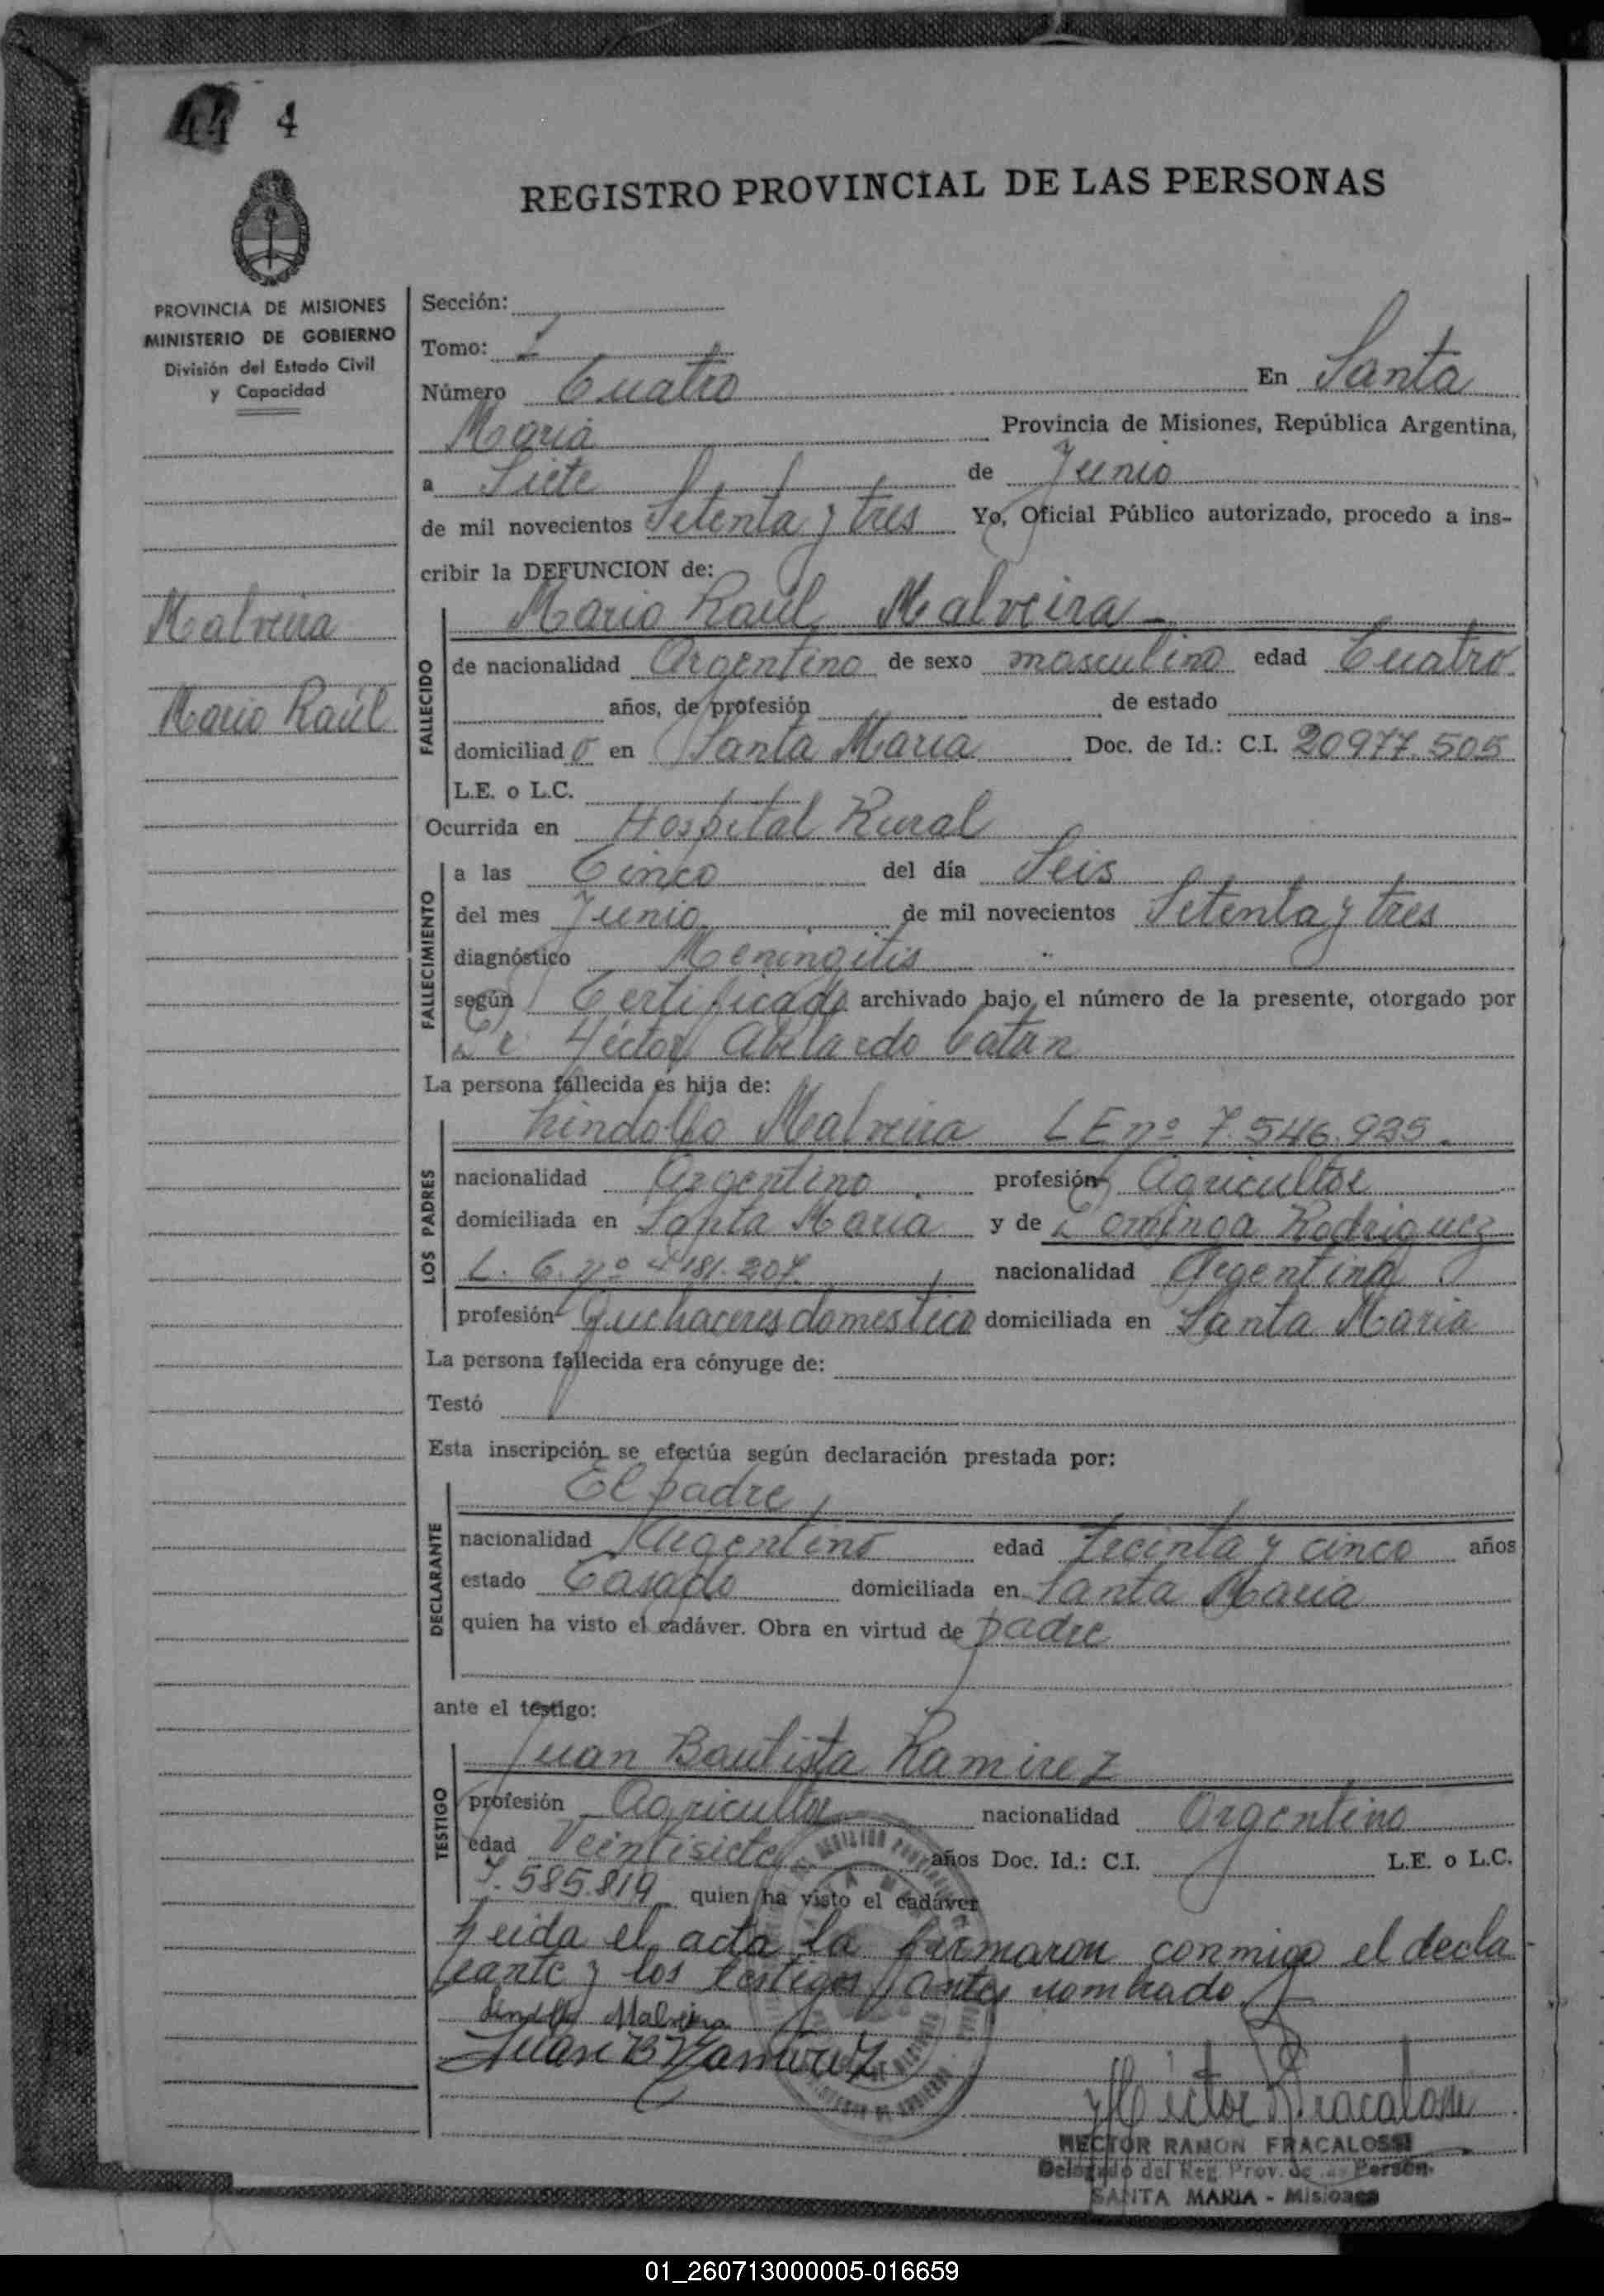 44 4
REGISTRO PROVINCIAL DE LAS PERSONAS
PROVINCIA DE MISIONES
MINISTERIO DE GOBIERNO
División del Estado Civil
y Capacidad
Malveira
Mario Raúl
Sección:
Tomo: I
Número Cuatro En Santa
María Provincia de Misiones, República Argentina,
a Siete de Junio
de mil novecientos Setenta y tres Yo, Oficial Público autorizado, procedo a ins-
cribir la DEFUNCION de:
Mario Raúl Malveira
FALLECIDO
de nacionalidad Argentino de sexo masculino edad Cuatro
años, de profesión de estado
domiciliad o en Santa María Doc. de Id.: C.I. 20977.505
L.E. o L.C.
Ocurrida en Hospital Rural
FALLECIMIENTO
a las Cinco del día Seis
del mes Junio de mil novecientos Setenta y tres
diagnóstico Meningitis
según Certificado archivado bajo el número de la presente, otorgado por
Dr. Héctor Abelardo Catan
La persona fallecida es hija de:
LOS PADRES
Lindolfo Malveira LE nº 7.546.935.
nacionalidad Argentino profesión Agricultor
domiciliada en Santa María y de Dominga Rodriguez
L. C. nº 4.181.207 nacionalidad Argentina
profesión Quehaceres domestico domiciliada en Santa María
La persona fallecida era cónyuge de:
Testó
Esta inscripción se efectúa según declaración prestada por:
DECLARANTE
El padre
nacionalidad Argentino edad Treinta y cinco años
estado Casado domiciliada en Santa María
quien ha visto el cadáver. Obra en virtud de padre
ante el testigo:
TESTIGO
Juan Bautista Ramirez
profesión Agricultor nacionalidad Argentino
edad Veintisiete años Doc. Id.: C.I. L.E. o L.C.
7.585.819 quien ha visto el cadáver
Leida el acta la firmaron conmigo el decla
rante y los testigos antes nombrado
Lindolfo Malveira
Juan B Ramirez
Hector R. Fracalossi
HECTOR RAMON FRACALOSSI
Delegado del Reg. Prov. de las Person.
SANTA MARIA - Misiones
01_260713000005-016659